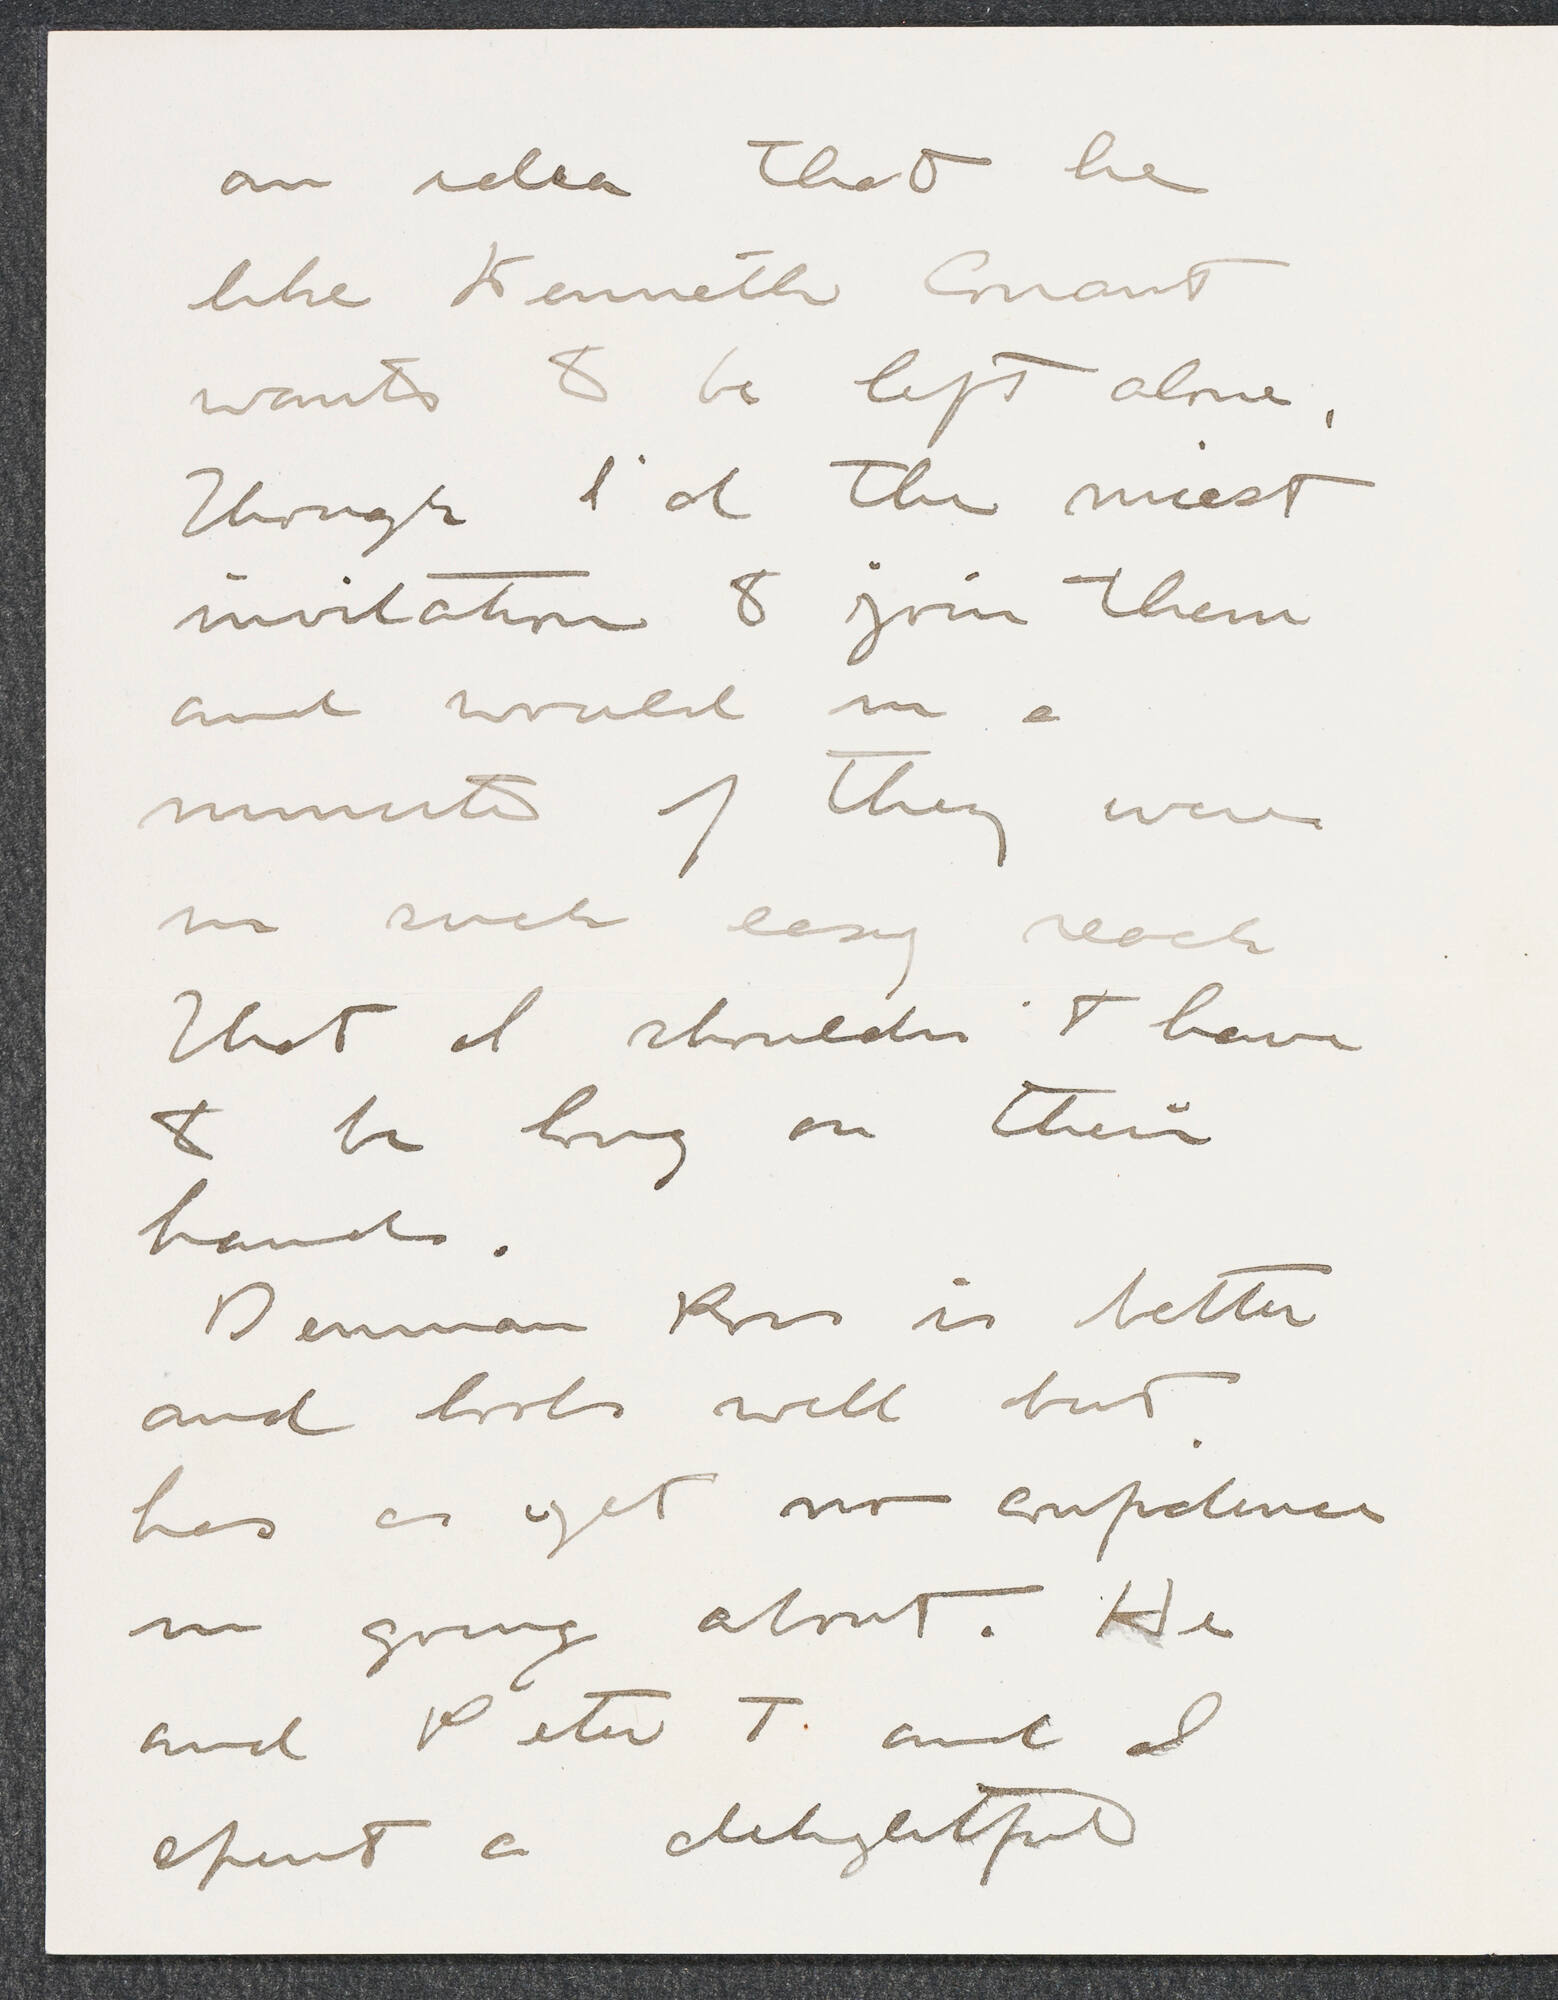 an idea that he
like Kenneth Conant
wants to be left alone.
Though I'd the nicest
invitation to join them
and would in a
minute if they were
in such easy reach
that I shouldn't have
to be long on their
hands.
Denman Ross is better
and looks well but
has as yet no confidence
in going about. He
and Peter T. and I
spent a delightful